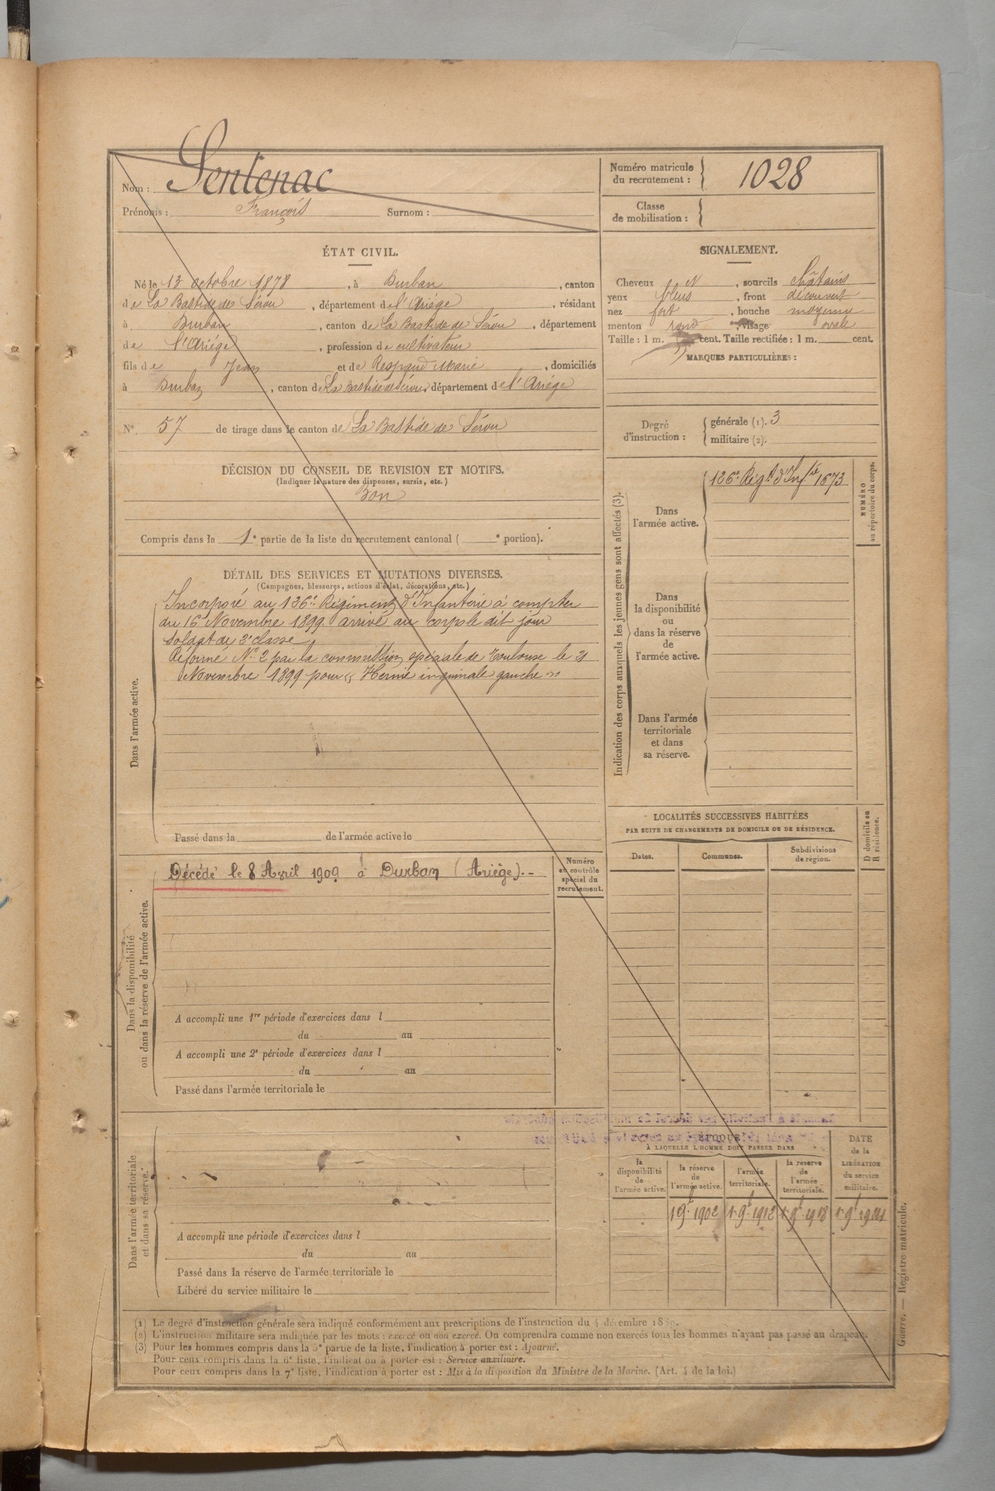 Nom : Sentenac
Prénoms : François Surnom :
Numéro matricule du recrutement : 1028
Classe de mobilisation :
ÉTAT CIVIL.
Né le 13 octobre 1878, à Durban, canton
de La Bastide de Sérou, département de l'Ariège, résidant
à Durban, canton de La Bastide de Sérou, département
de l'Ariège, profession de cultivateur
fils de Jean et de Respaud Marie, domiciliés
à Durban, canton de La Bastide de Sérou, département de l'Ariège
N° 57 de tirage dans le canton de La Bastide de Sérou
SIGNALEMENT.
Cheveux et, sourcils châtains
yeux bleus, front découvert
nez fort, bouche moyenne
menton rond, visage ovale
Taille : 1 m. cent. Taille rectifiée : 1 m. cent.
MARQUES PARTICULIÈRES :
Degré d'instruction : générale (1). 3
militaire (2).
DÉCISION DU CONSEIL DE REVISION ET MOTIFS.
(Indiquer la nature des dispenses, sursis, etc.)
Bon
Compris dans la 1e partie de la liste du recrutement cantonal ( e portion).
DÉTAIL DES SERVICES ET MUTATIONS DIVERSES.
(Campagnes, blessures, actions d'éclat, décorations, etc.)
Dans l'armée active.
Incorporé au 126e Régiment d'Infanterie à compter
du 16 Novembre 1899 arrivé au corps le dit jour
soldat de 2e classe
Réformé No 2 par la commission spéciale de Toulouse le 21
Novembre 1899 pour « Hernie inguinale gauche »
Passé dans la de l'armée active le
Indication des corps auxquels les jeunes gens sont affectés (3).
Dans l'armée active.
126e Régt d'Infie 1573
NUMÉRO au répertoire du corps.
Dans la disponibilité ou dans la réserve de l'armée active.
Dans l'armée territoriale et dans sa réserve.
LOCALITÉS SUCCESSIVES HABITÉES
PAR SUITE DE CHANGEMENTS DE DOMICILE OU DE RÉSIDENCE.
Dates. Communes. Subdivisions de région. D domicile ou R résidence.
Dans la disponibilité ou dans la réserve de l'armée active.
Décédé le 8 Avril 1909 à Durban (Ariège).--
Numéro au contrôle spécial du recrutement.
A accompli une 1re période d'exercices dans l
du au
A accompli une 2e période d'exercices dans l
du au
Passé dans l'armée territoriale le
Dans l'armée territoriale et dans sa réserve.
A accompli une période d'exercices dans l
du au
Passé dans la réserve de l'armée territoriale le
Libéré du service militaire le
ÉPOQUE
À LAQUELLE L'HOMME DOIT PASSER DANS
la disponibilité de l'armée active. la réserve de l'armée active. l'armée territoriale. la réserve de l'armée territoriale. DATE de la LIBÉRATION du service militaire.
1 9e 1902
(1) Le degré d'instruction générale sera indiqué conformément aux prescriptions de l'instruction du 4 décembre 1889.
(2) L'instruction militaire sera indiquée par les mots : exercé ou non exercé. On comprendra comme non exercés tous les hommes n'ayant pas passé au drapeau.
(3) Pour les hommes compris dans la 5e partie de la liste, l'indication à porter est : Ajourné.
Pour ceux compris dans la 6e liste, l'indication à porter est : Service auxiliaire.
Pour ceux compris dans la 7e liste, l'indication à porter est : Mis à la disposition du Ministre de la Marine. (Art. 4 de la loi.)
Guerre. — Registre matricule.